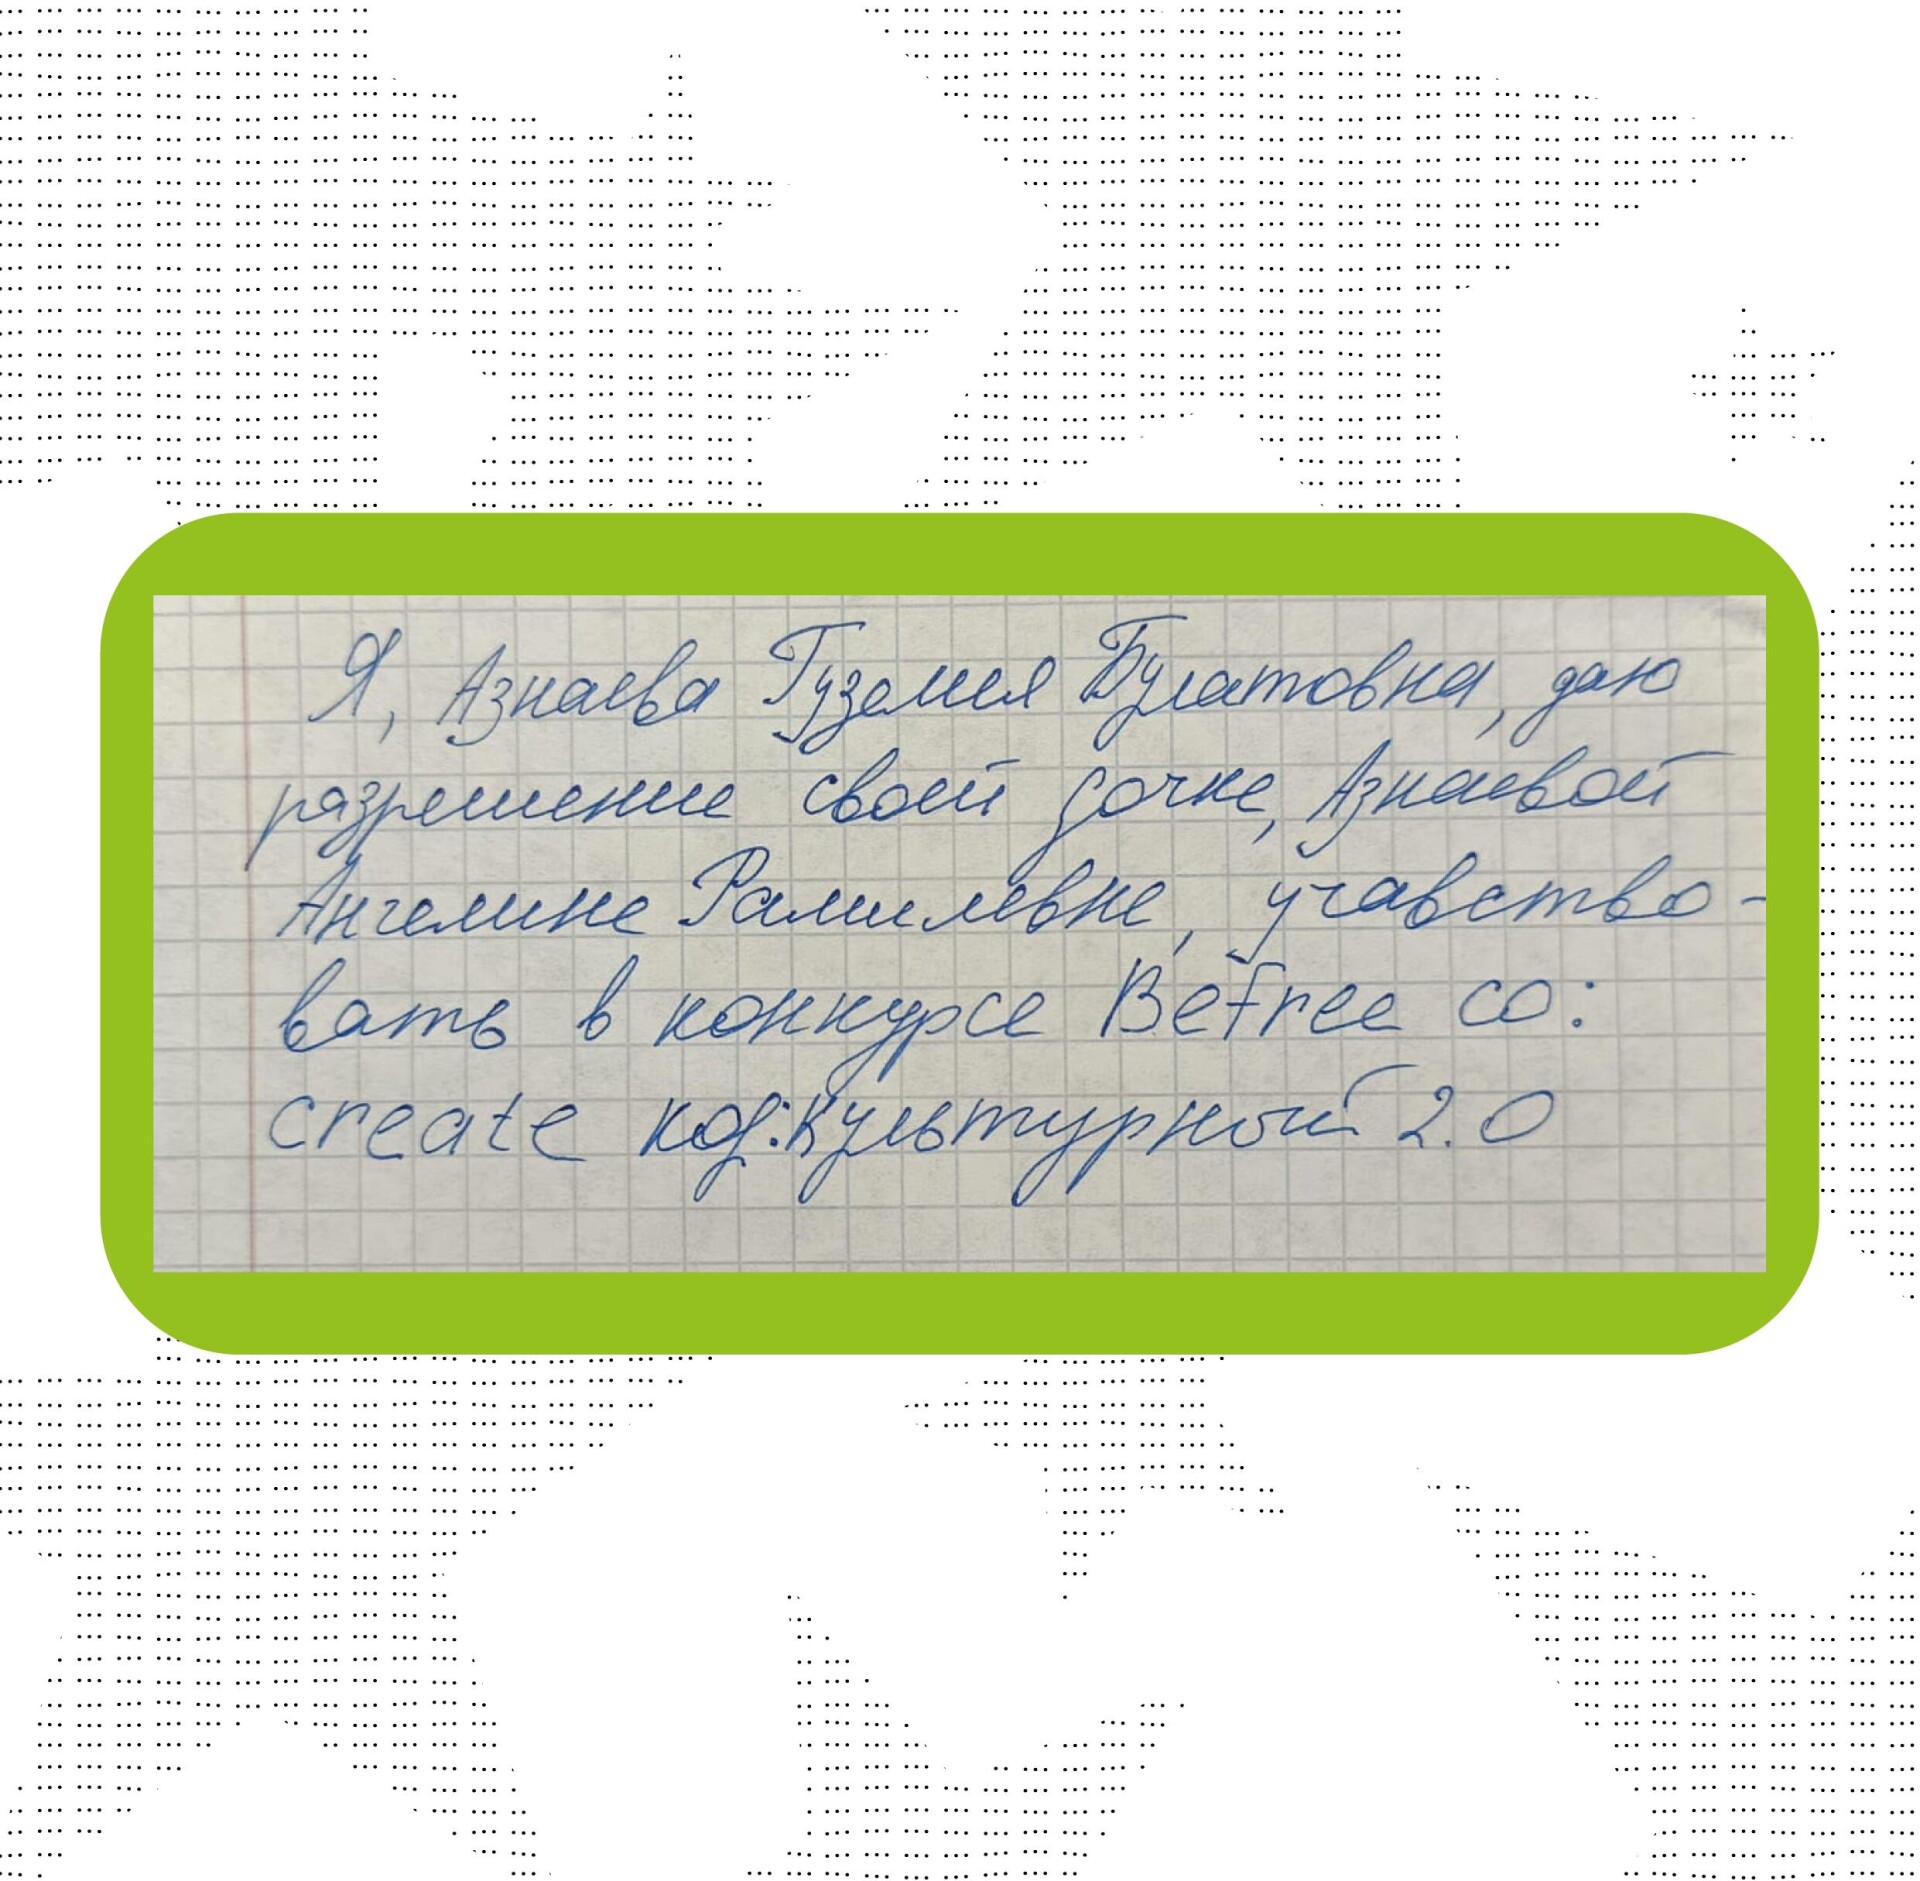 Я, Азнаева Гузелия Булатовна, даю
разрешение своей дочке, Азнаевой
Ангелине Рамилевне, учавство-
вать в конкурсе Befree co:
create код:культурной 2.0